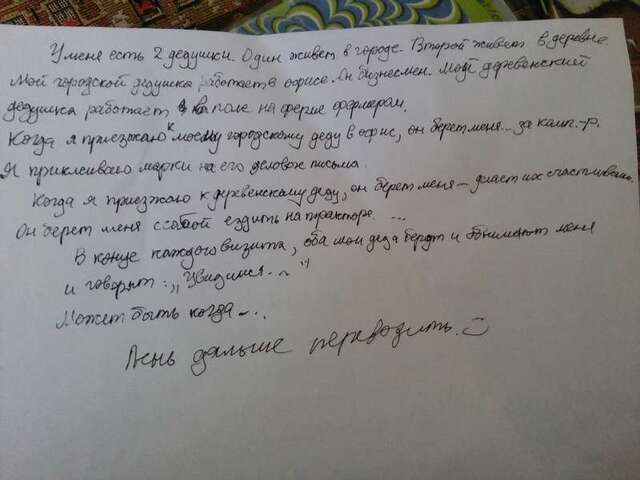 У меня есть 2 дедушки. Один живет в городе. Второй живет в деревне.
Мой городской дедушка работает в офисе. Он бизнесмен. Мой деревенский
дедушка работает в поле на ферме фармером.
Когда я приезжаю к моему городскому деду в офис, он берет меня... за комп.-р.
Я приклеиваю марки на его деловое письма.
Когда я приезжаю к деревенскому деду, он берет меня – делает их счастливыми.
Он берет меня с собой ездить на тракторе. ...
В конце каждого визита, оба мои деда берут и обнимают меня
и говорят: „Увидимся..."
Может быть когда-...
Лень дальше переводить.